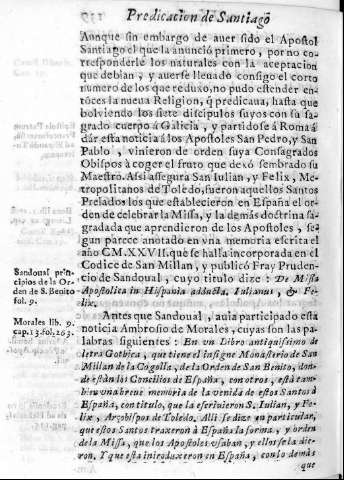 Predicacion de Santiago
Aunque sin embargo de auer sido el Apostol
Santiago el que la anunciò primero, por no co-
rresponderle los naturales con la aceptacion
que debian, y auerse lleuado consigo el corto
numero de los que reduxo, no pudo estender en-
tõces la nueua Religion, q̃ predicaua, hasta que
bolviendo los siete discipulos suyos con su sa-
grado cuerpo à Galicia, y partidose á Roma á
dár esta noticia á los Apostoles San Pedro, y San
Pablo, vinieron de orden suya Consagrados
Obispos à coger el fruto que dexó sembrado su
Maestro. Assi assegura San Iulian, y Felix, Me-
tropolitanos de Toledo, fueron aquellos Santos
Prelados los que establecieron en España el or-
den de celebrar la Missa, y la demás doctrina sa-
gradada que aprendieron de los Apostoles, se-
gun parece anotado en vna memoria escrita el
año CM.XXVII. que se halla incorporada en el
Codice de San Millan, y publicó Fray Pruden-
cio de Sandoual, cuyo titulo dize: De Missa
Apostolica in Hispania adducta, Iulianus, & Fe-
lix.
Sandoual prin-
cipios de la Or-
den de S. Benito
fol. 9.
Antes que Sandoual, auia participado esta
noticia Ambrosio de Morales, cuyas son las pa-
labras siguientes: En vn Libro antiquissimo de
letra Gothica, que tiene el insigne Monasterio de San
Millan de la Cogolla, de la Orden de San Benito, don-
de estàn los Concilios de España, con otros, està tam-
bien vna breue memoria de la venida de estos Santos à
España, con titulo, que la escriuieron S. Iulian, y Fe-
lix, Arçobispos de Toledo. Alli se dize en particular,
que estos Santos traxeron à España la forma, y orden
de la Missa, que los Apostoles vsaban, y ellos se la die-
ron. Y que esta introduxeron en España, con lo demàs
que
Morales lib. 9.
cap. 13. fol. 263.